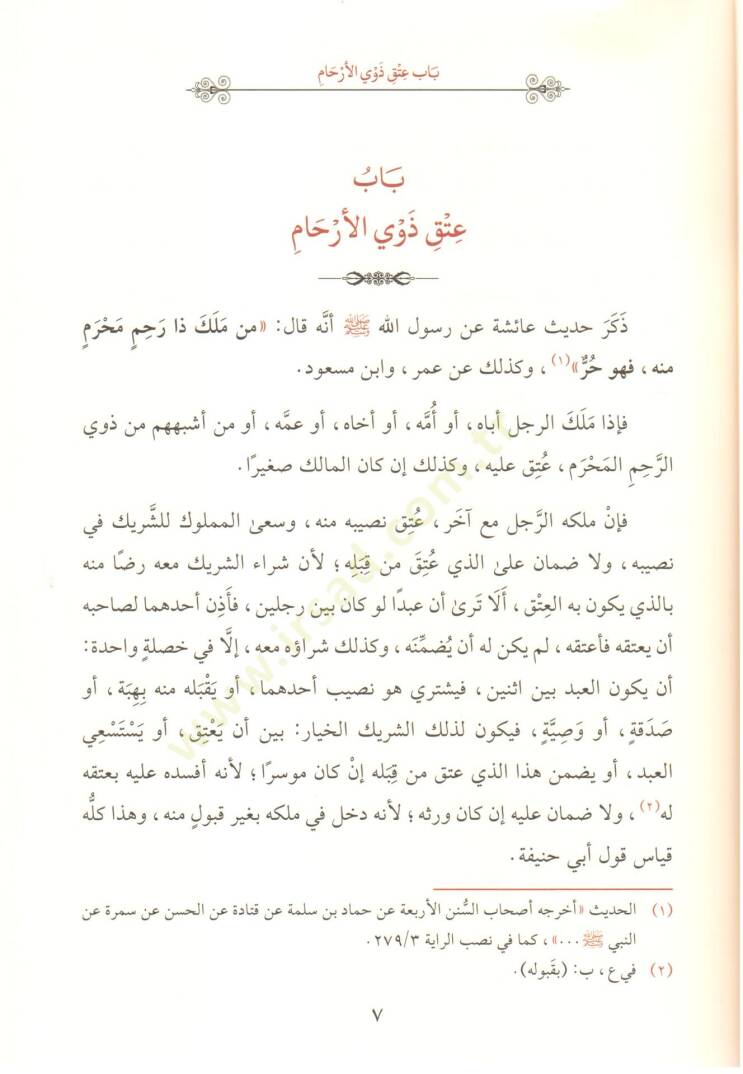 بَاب عِتْقِ ذَوْي الأرْحَامِ
بَابُ
عِتْقِ ذَوْي الأرْحَامِ
ذَكَرَ حديث عائشة عن رسول الله ﷺ أنَّه قال: «من مَلَكَ ذا رَحِمٍ مَحْرَمٍ
منه، فهو حُرٌّ»(١)، وكذلك عن عمر، وابن مسعود.
فإذا مَلَكَ الرجل أباه، أو أُمَّه، أو أخاه، أو عمَّه، أو من أشبههم من ذوي
الرَّحِمِ المَحْرَم، عُتِق عليه، وكذلك إن كان المالك صغيرًا.
فإنْ ملكه الرَّجل مع آخَر، عُتِق نصيبه منه، وسعىٰ المملوك للشَّريك في
نصيبه، ولا ضمان علىٰ الذي عُتِقَ من قِبَلِه؛ لأن شراء الشريك معه رضًا منه
بالذي يكون به العِتْق، أَلَا تَرىٰ أن عبدًا لو كان بين رجلين، فأَذِن أحدهما لصاحبه
أن يعتقه فأعتقه، لم يكن له أن يُضمِّنَه، وكذلك شراؤه معه، إلَّا في خصلةٍ واحدة:
أن يكون العبد بين اثنين، فيشتري هو نصيب أحدهما، أو يَقْبَله منه بِهِبَة، أو
صَدَقةٍ، أو وَصِيَّةٍ، فيكون لذلك الشريك الخيار: بين أن يَعْتِق، أو يَسْتَسْعِي
العبد، أو يضمن هذا الذي عتق من قِبَله إنْ كان موسرًا؛ لأنه أفسده عليه بعتقه
له(٢)، ولا ضمان عليه إن كان ورثه؛ لأنه دخل في ملكه بغير قبولٍ منه، وهذا كلُّه
قياس قول أبي حنيفة.
(١) الحديث «أخرجه أصحاب السُّنن الأربعة عن حماد بن سلمة عن قتادة عن الحسن عن سمرة عن
النبي ﷺ...»، كما في نصب الراية ٢٧٩/٣.
(٢) في ع، ب: (بقَبوله).
٧
www.irsad.com.tr